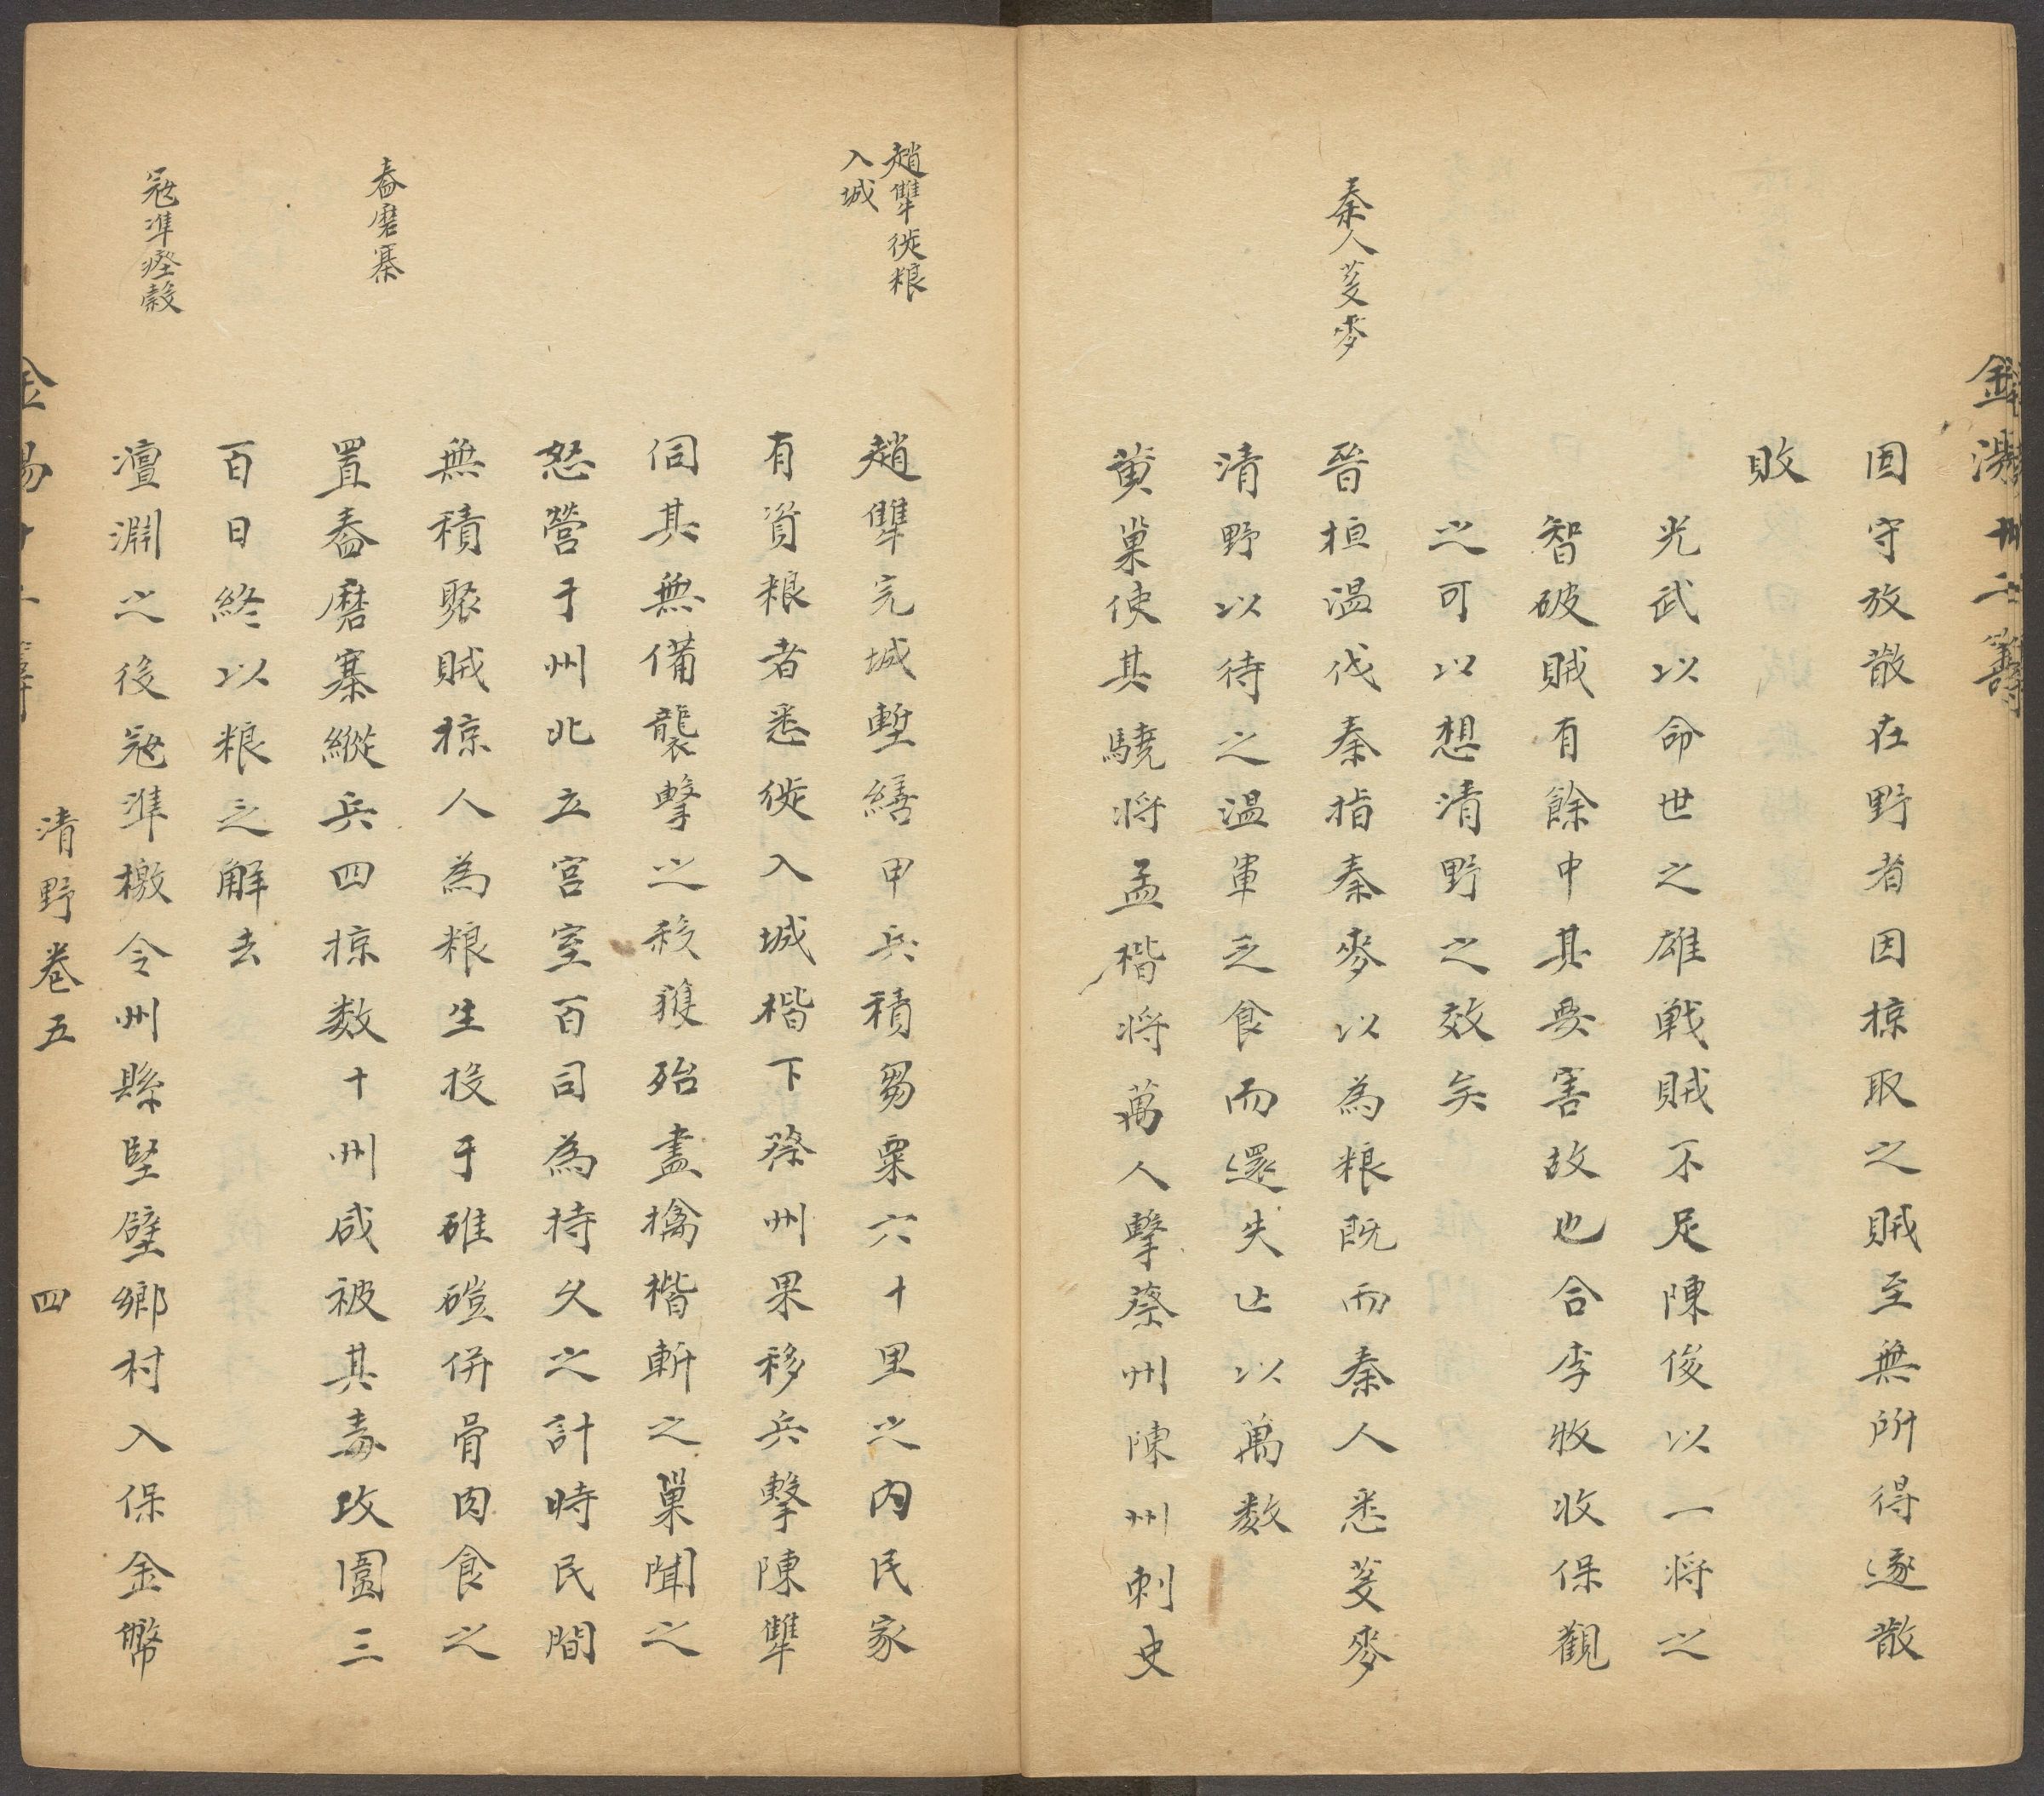 金湯十二籌
固守放散在野者因掠取之賊至無所得遂散
敗
光武以命世之雄戰賊不足陳俊以一将之
智破賊有餘中其要害故也合李牧收保觀
之可以想清野之效矣
秦人芟麥
晉桓溫伐秦指秦麥以為粮既而秦人悉芟麥
清野以待之温軍乏食而還失亡以萬数
黄巢使其驍将孟楷将萬人擊蔡州陳州刺史
趙犨徙粮
入城
趙犨完城塹繕甲兵積芻粟六十里之内民家
有資粮者悉徙入城楷下蔡州果移兵擊陳犨
伺其無備襲擊之殺獲殆盡擒楷斬之巢聞之
怒營于州北立宫室百司為持久之計時民間
無積聚賊掠人為粮生投于碓磑併骨肉食之
舂磨寨
置舂磨寨縱兵四掠数十州咸被其毒攻圍三
百日終以粮乏解去
冦準瘞穀
澶淵之後冦準檄令州縣堅壁鄉村入保金幣
金湯十二籌
清野卷五
四